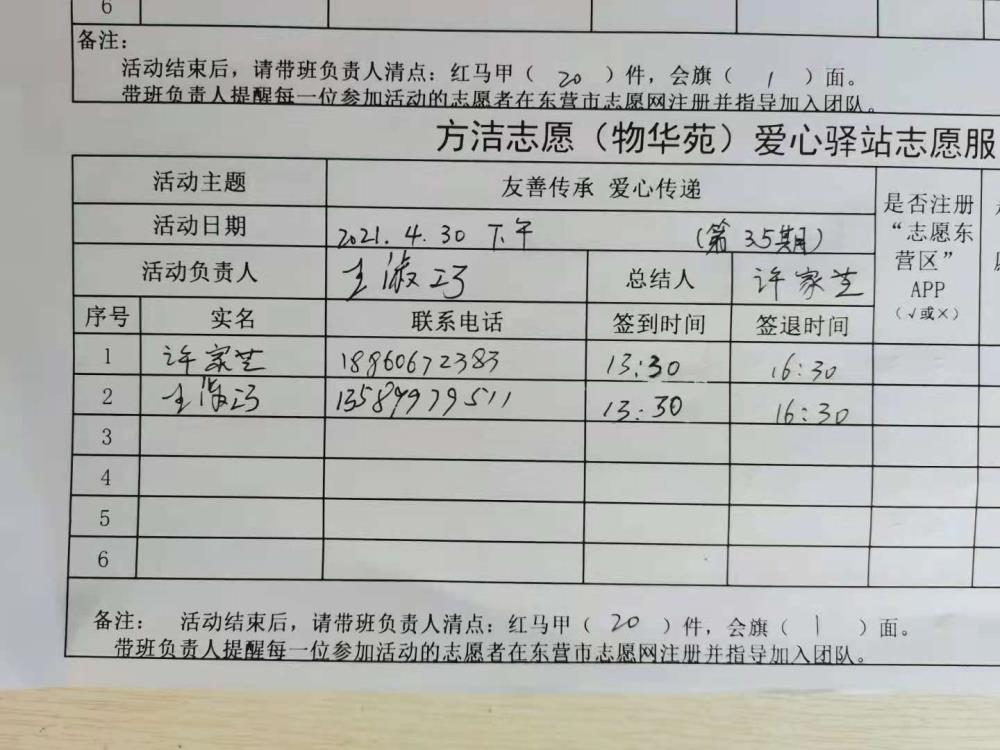 6
备注：
活动结束后，请带班负责人清点：红马甲（ 20 ）件，会旗（ 1 ）面。
带班负责人提醒每一位参加活动的志愿者在东营市志愿网注册并指导加入团队。
方洁志愿（物华苑）爱心驿站志愿服
活动主题 友善传承 爱心传递
活动日期 2021.4.30 下午 （第35期）
活动负责人 王淑巧 总结人 许家芝
是否注册
“志愿东
营区”
APP
（√或×）
序号 实名 联系电话 签到时间 签退时间
1 许家芝 18860672383 13:30 16:30
2 王淑巧 13589979511 13:30 16:30
3
4
5
6
备注： 活动结束后，请带班负责人清点：红马甲（ 20 ）件，会旗（ 1 ）面。
带班负责人提醒每一位参加活动的志愿者在东营市志愿网注册并指导加入团队。